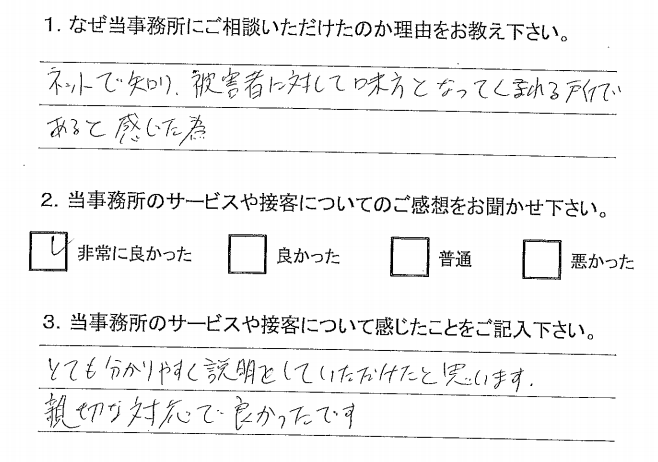 1. なぜ当事務所にご相談いただけたのか理由をお教え下さい。
ネットで知り、被害者に対して味方となってくまれる所で
あると感じた為
2. 当事務所のサービスや接客についてのご感想をお聞かせ下さい。
非常に良かった 良かった 普通 悪かった
3. 当事務所のサービスや接客について感じたことをご記入下さい。
とても分かりやすく説明をしていただけたと思います.
親切な対応で良かったです